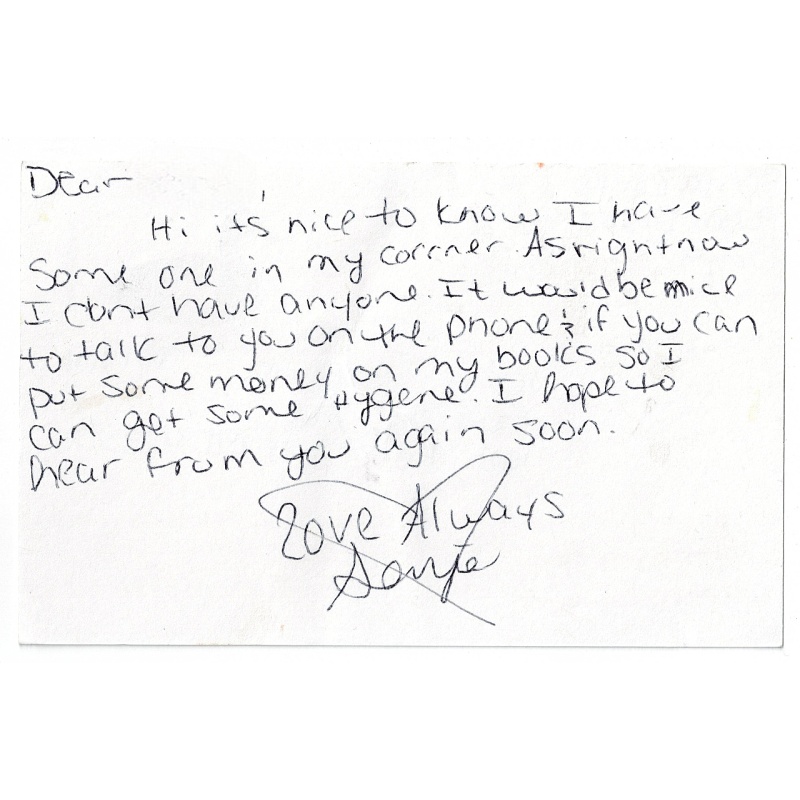 Dear
Hi it's nice to know I have
Some one in my corrner. As right now
I dont have anyone. It would be nice
to talk to you on the phone & if you can
put some money on my books so I
can get some Hygene. I hope to
hear from you again soon.
Love Always